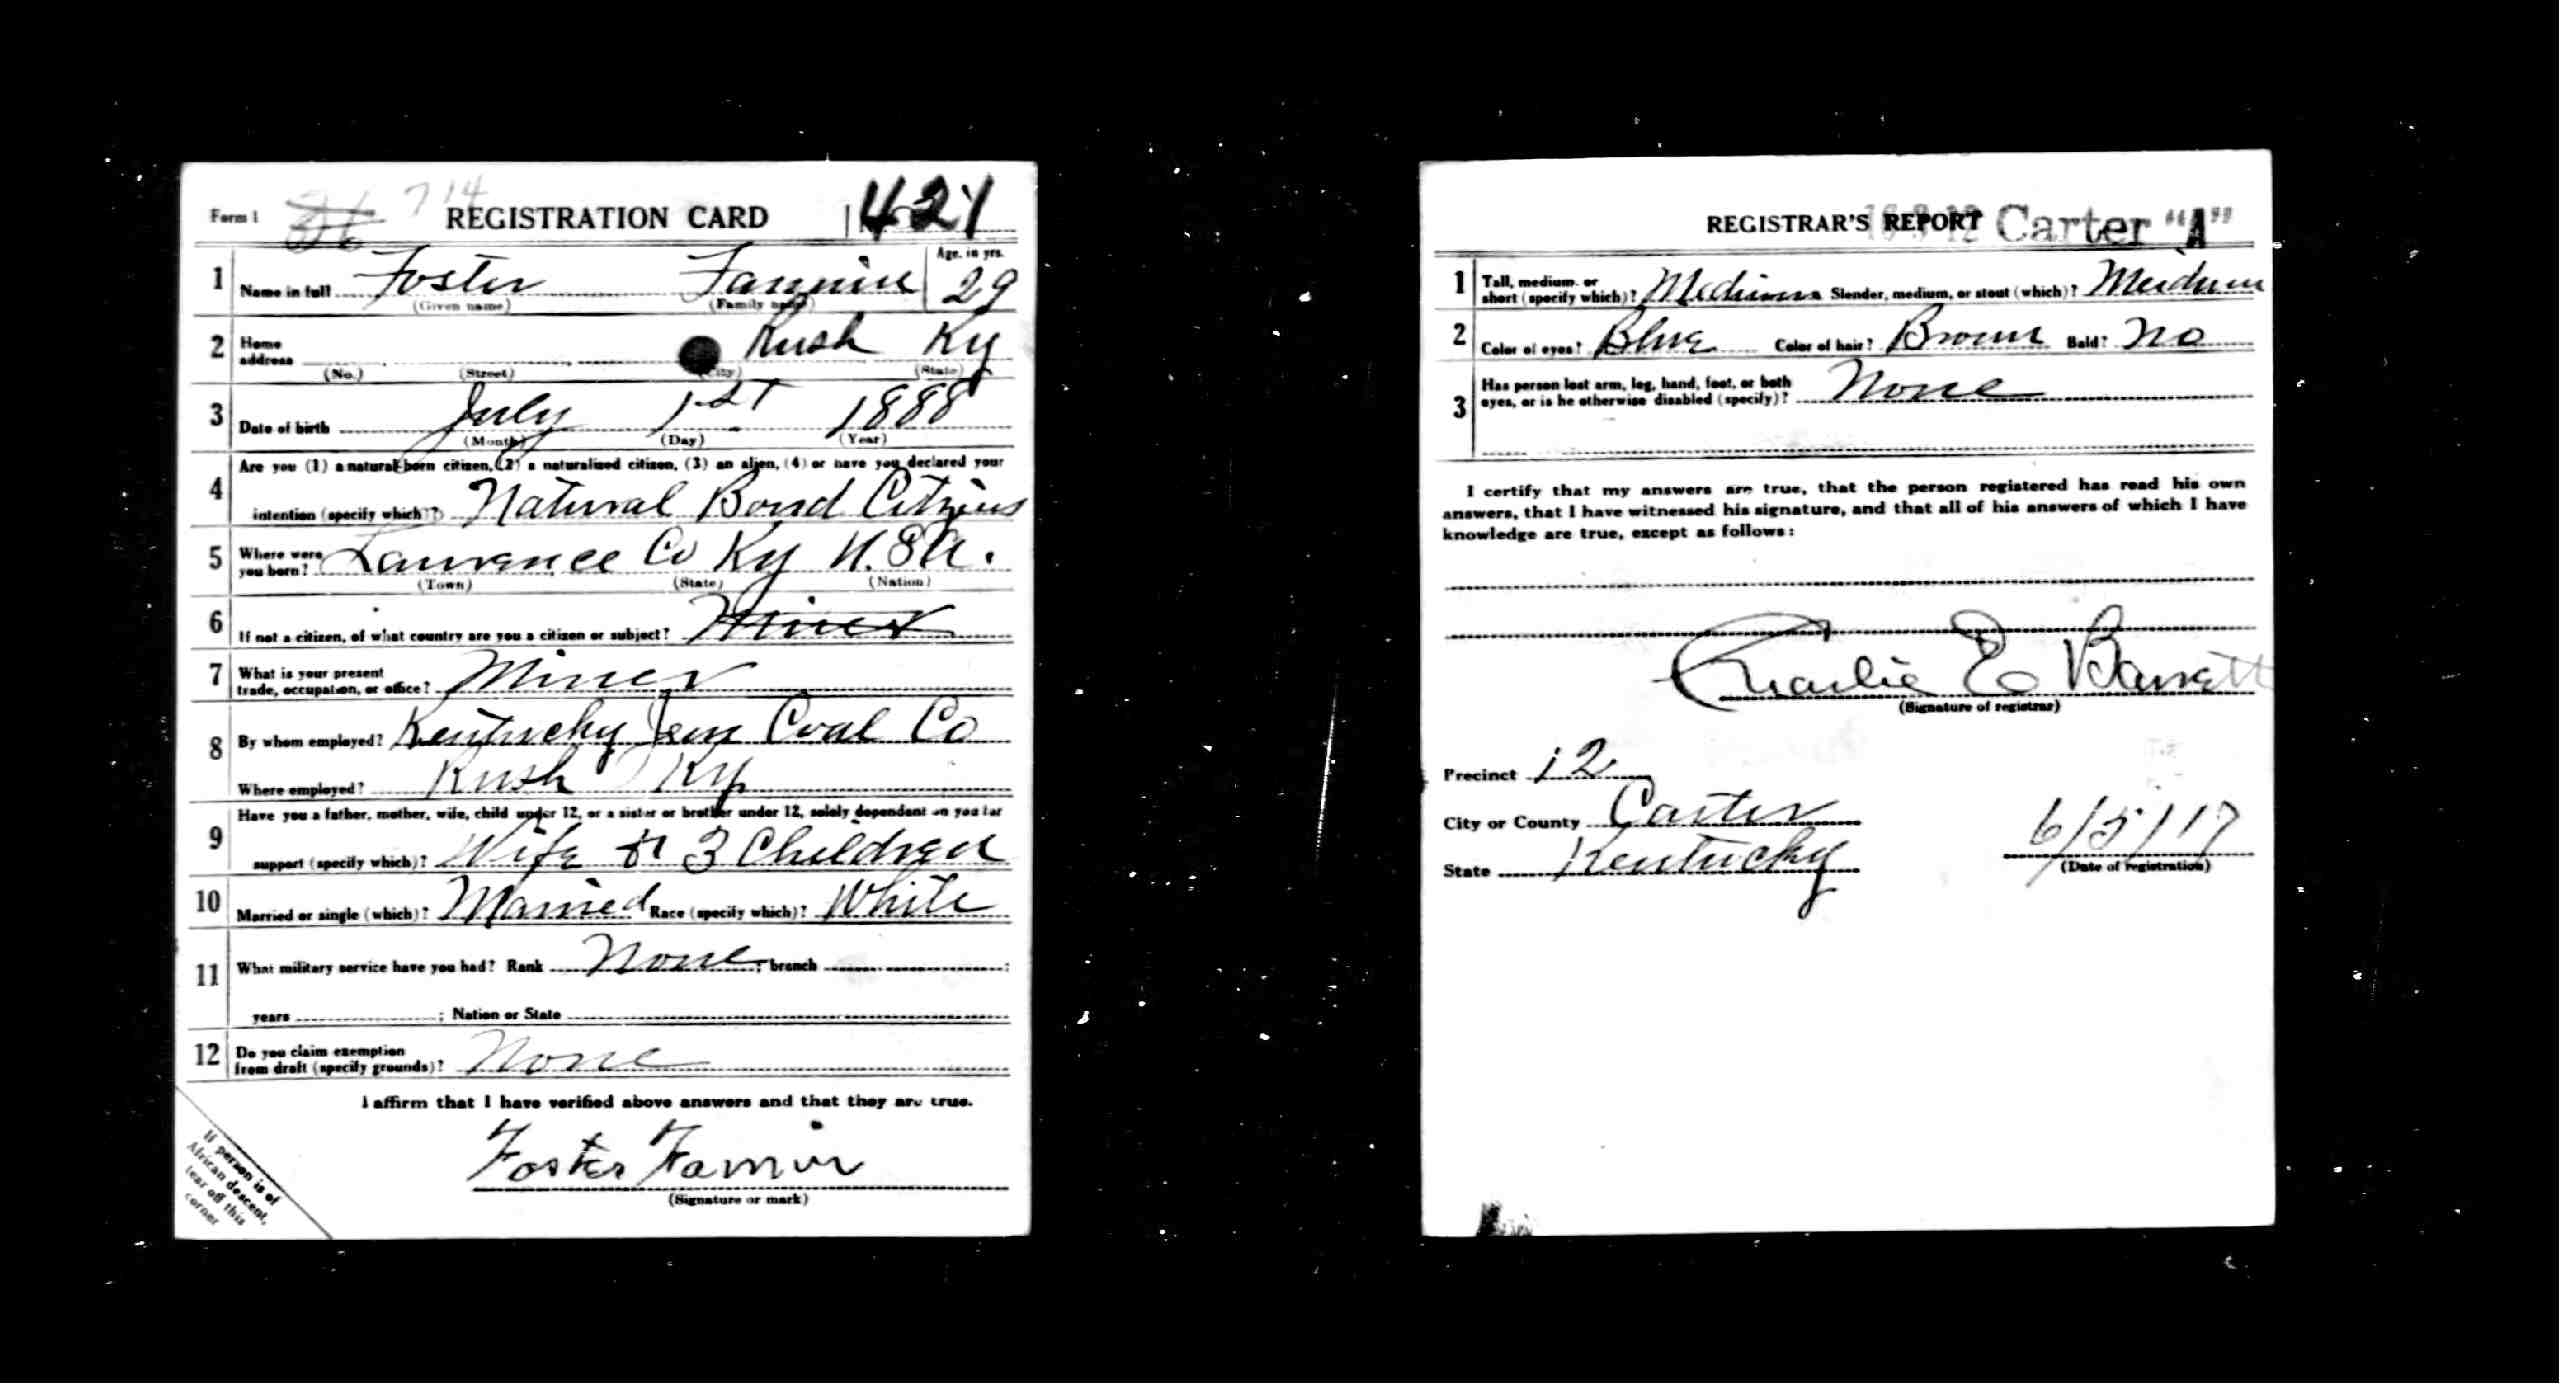 Form 1 714 REGISTRATION CARD 421
1 Name in full Foster Fannin Age, in yrs. 29
(Given name) (Family name)
2 Home address Rush Ky
(No.) (Street) (City) (State)
3 Date of birth July 1st 1888
(Month) (Day) (Year)
4 Are you (1) a natural-born citizen, (2) a naturalized citizen, (3) an alien, (4) or have you declared your
intention (specify which)? Natural Bond Citizens
5 Where were you born? Lawrence Co Ky U.S.A.
(Town) (State) (Nation)
6 If not a citizen, of what country are you a citizen or subject? Miner
7 What is your present
trade, occupation, or office? Miner
8 By whom employed? Kentucky Jem Coal Co
Where employed? Rush Ky
9 Have you a father, mother, wife, child under 12, or a sister or brother under 12, solely dependent on you for
support (specify which)? Wife & 3 Children
10 Married or single (which)? Married Race (specify which)? White
11 What military service have you had? Rank None; branch
years ; Nation or State
12 Do you claim exemption
from draft (specify grounds)? None
I affirm that I have verified above answers and that they are true.
Foster Fannin
(Signature or mark)
If person is of
African descent,
tear off this
corner
REGISTRAR'S REPORT Carter "A"
1 Tall, medium, or
short (specify which)? Medium Slender, medium, or stout (which)? Meidum
2 Color of eyes? Blue Color of hair? Brown Bald? No
3 Has person lost arm, leg, hand, foot, or both
eyes, or is he otherwise disabled (specify)? None
I certify that my answers are true, that the person registered has read his own
answers, that I have witnessed his signature, and that all of his answers of which I have
knowledge are true, except as follows:
Charlie E Barrett
(Signature of registrar)
Precinct 12
City or County Carter
State Kentucky
6/5/17
(Date of registration)